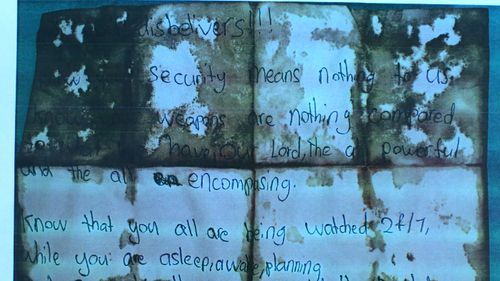 disbelivers!!!
security means nothing to us,
know weapons are nothing compared
have, our Lord, the all powerful
and the all encompasing.
Know that you all are being watched 24/7,
while you are asleep, awake, planning